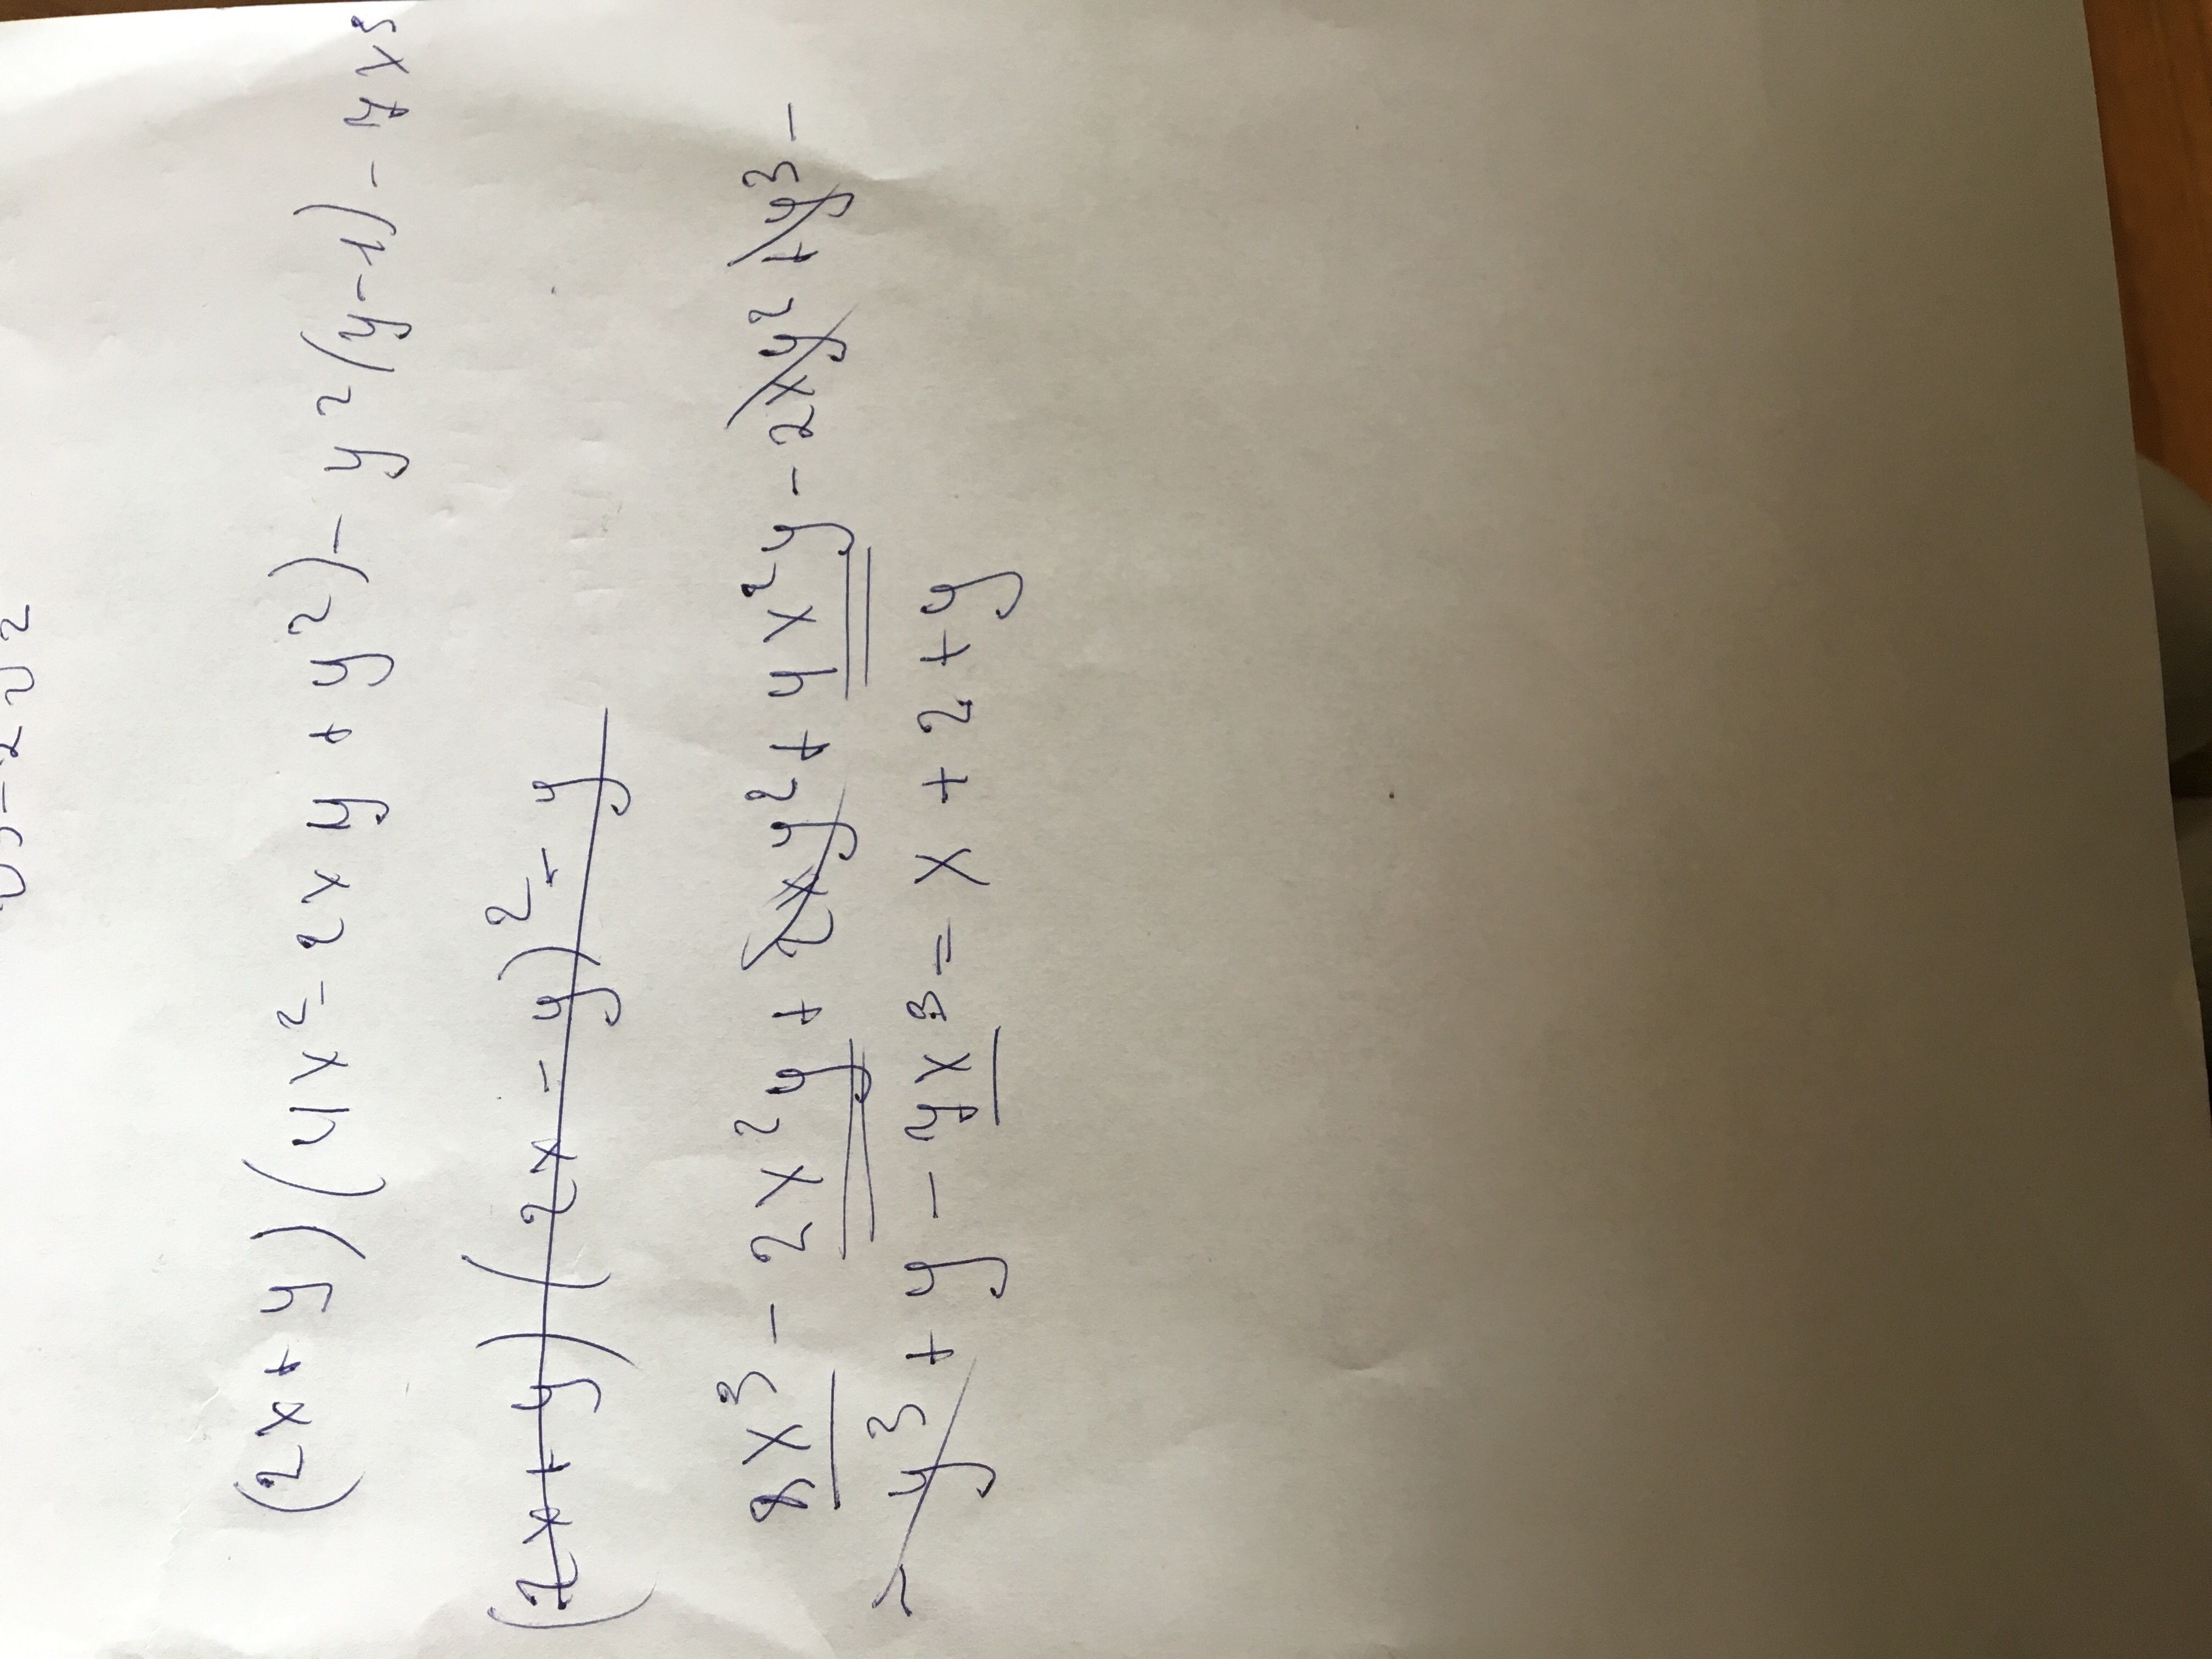 (2x+y)(4x²-2xy+y²)-y²(y-1)-7x³
(2x+y)(2x-y)²-y
8x³-2x²y+2xy²+4x²y-2xy²+y³-
-y³+y-7x³=x+2+y